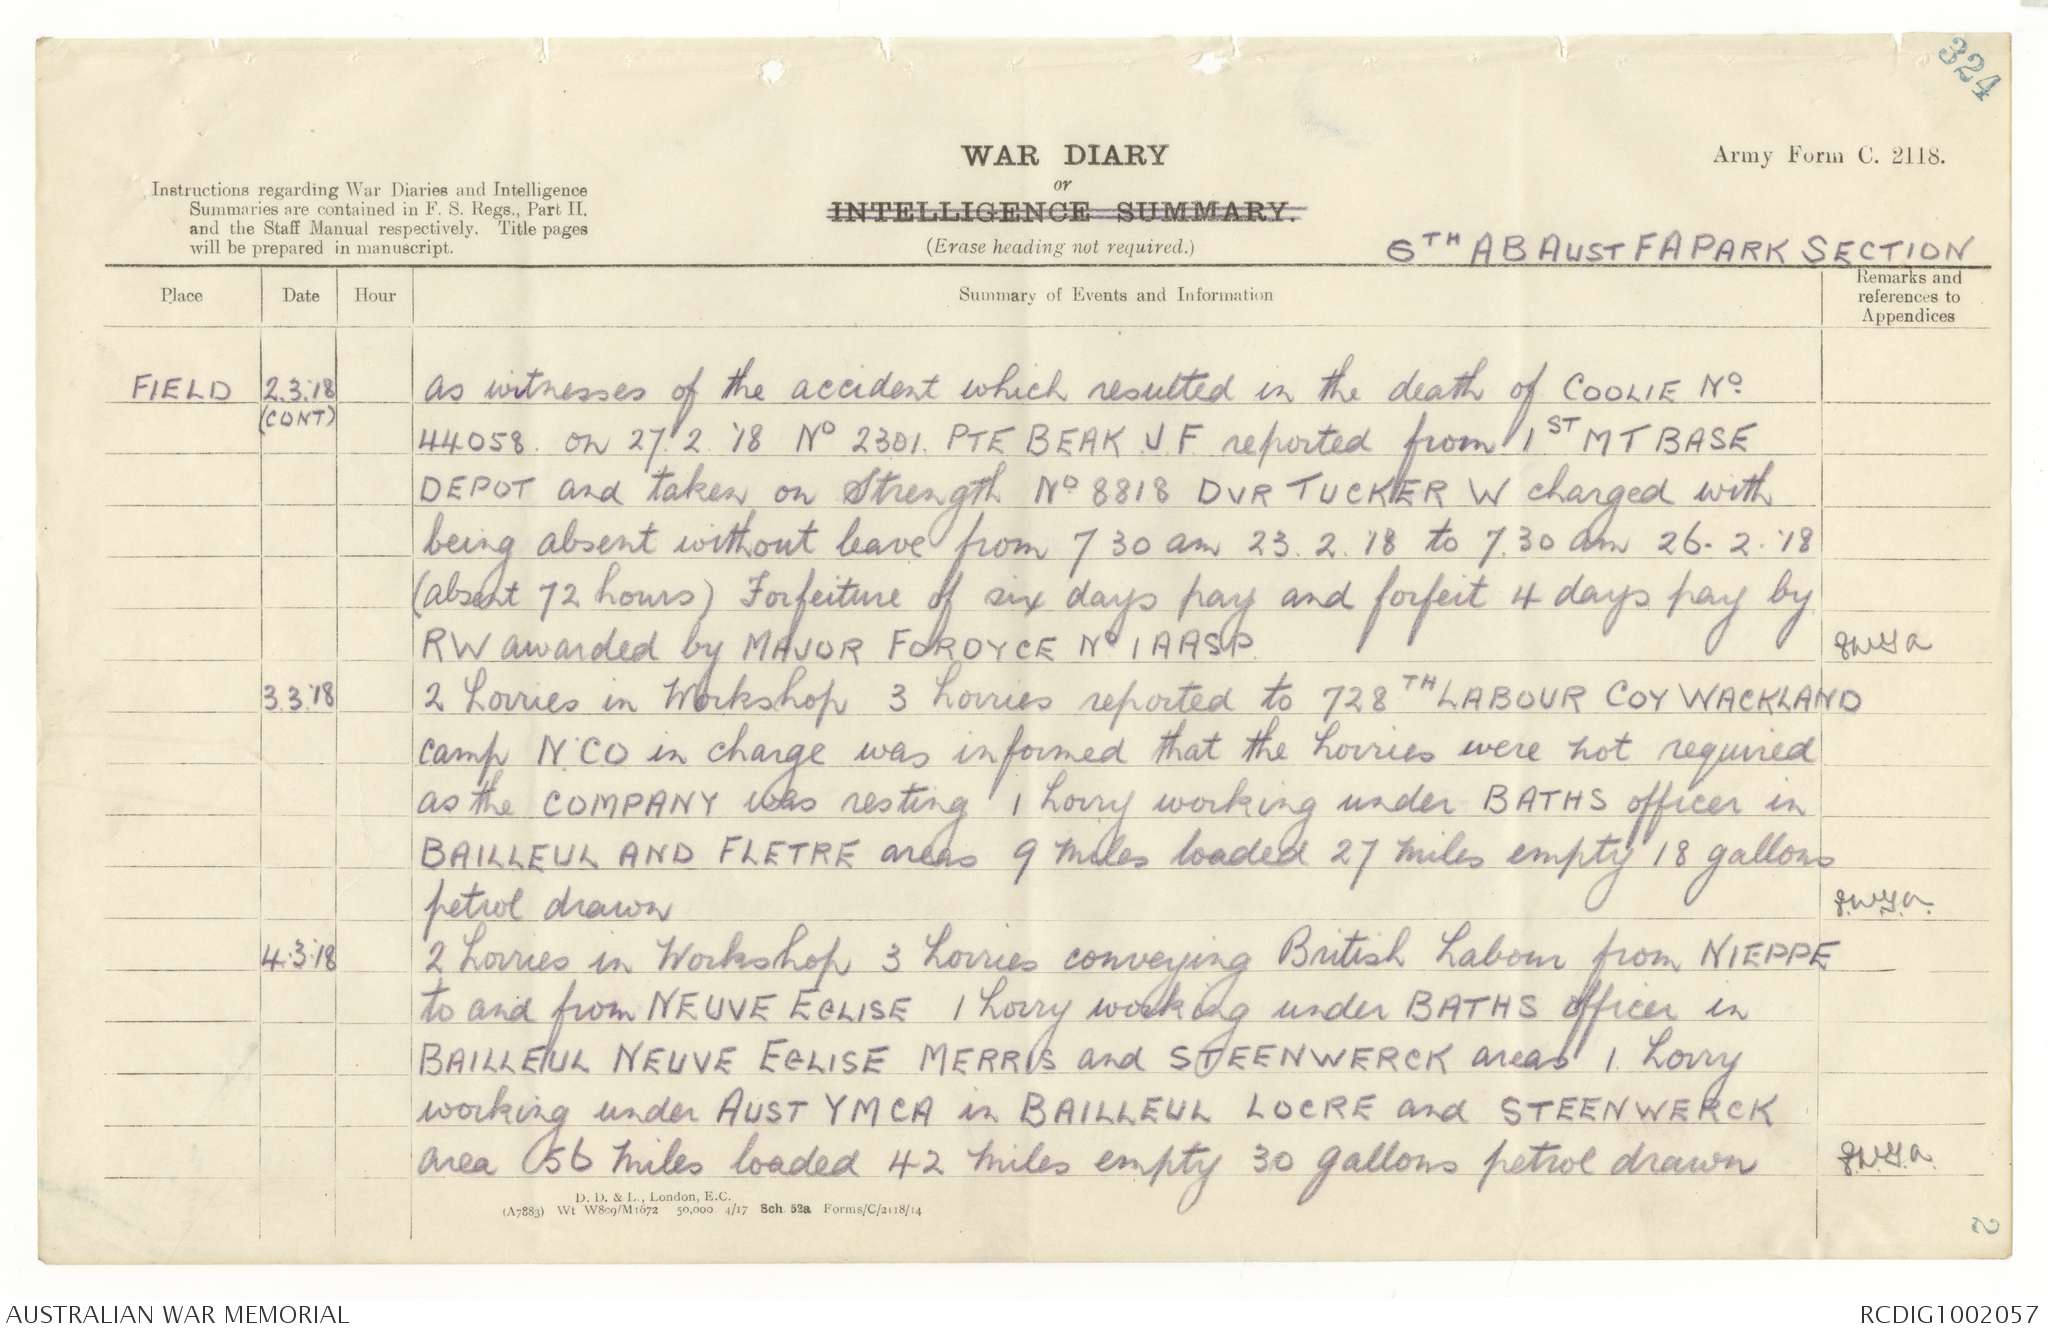 324
WAR DIARY
or
INTELLIGENCE SUMMARY.
(Erase heading not required.)
Army Form C. 2118.
Instructions regarding War Diaries and Intelligence
Summaries are contained in F. S. Regs., Part II.
and the Staff Manual respectively. Title pages
will be prepared in manuscript.
6TH AB AUST F A PARK SECTION
Place Date Hour Summary of Events and Information Remarks and references to Appendices
FIELD 2.3.'18 as witnesses of the accident which resulted in the death of COOLIE No
(CONT) 44058. on 27.2.'18 No 2301. PTE BEAK J F reported from 1ST M T BASE
DEPOT and taken on Strength No 8818 DVR TUCKER W charged with
being absent without leave from 7 30 am 23.2.'18 to 7.30 am 26.2.'18
(absent 72 hours) Forfeiture of six days pay and forfeit 4 days pay by
RW awarded by MAJOR FORDYCE No 1 AASP.
3.3.'18 2 Lorries in Workshop 3 Lorries reported to 728TH LABOUR COY WACKLAND
camp N.CO in charge was informed that the Lorries were not required
as the COMPANY was resting 1 Lorry working under BATHS officer in
BAILLEUL AND FLETRE areas 9 miles loaded 27 miles empty 18 gallons
petrol drawn
4.3.'18 2 Lorries in Workshop 3 Lorries conveying British Labour from NIEPPE
to and from NEUVE EGLISE 1 Lorry working under BATHS officer in
BAILLEUL NEUVE EGLISE MERRIS and STEENWERCK areas 1 Lorry
working under AUST YMCA in BAILLEUL LOCRE and STEENWERCK
area 56 miles loaded 42 miles empty 30 gallons petrol drawn
D. D. & L., London, E.C.
(A7883) Wt W809/M1672 50,000 4/17 Sch. 52a Forms/C/2118/14
2
AUSTRALIAN WAR MEMORIAL
RCDIG1002057